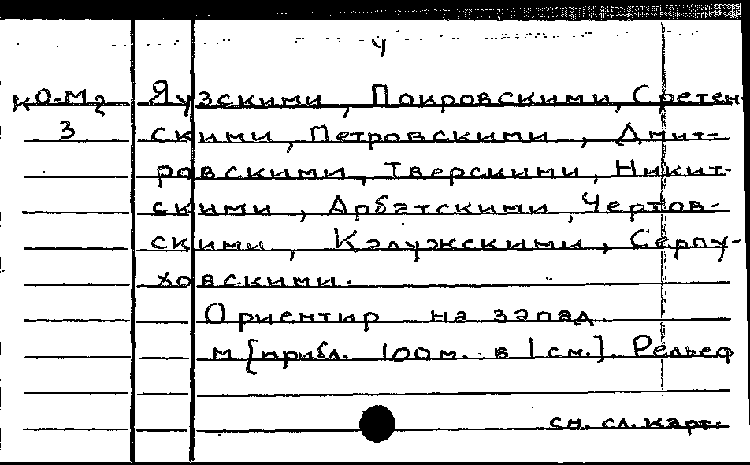 4
КО-М2 Яузскими, Покровскими, Сретен-
3 скими, Петровскими, Дмит-
ровскими, Тверскими, Никит-
скими, Арбатскими, Чертов-
скими, Калужскими, Серпу-
ховскими.
Ориентир на запад.
М [прибл. 100 м. в 1 см.]. Рельеф
см. сл. карт.